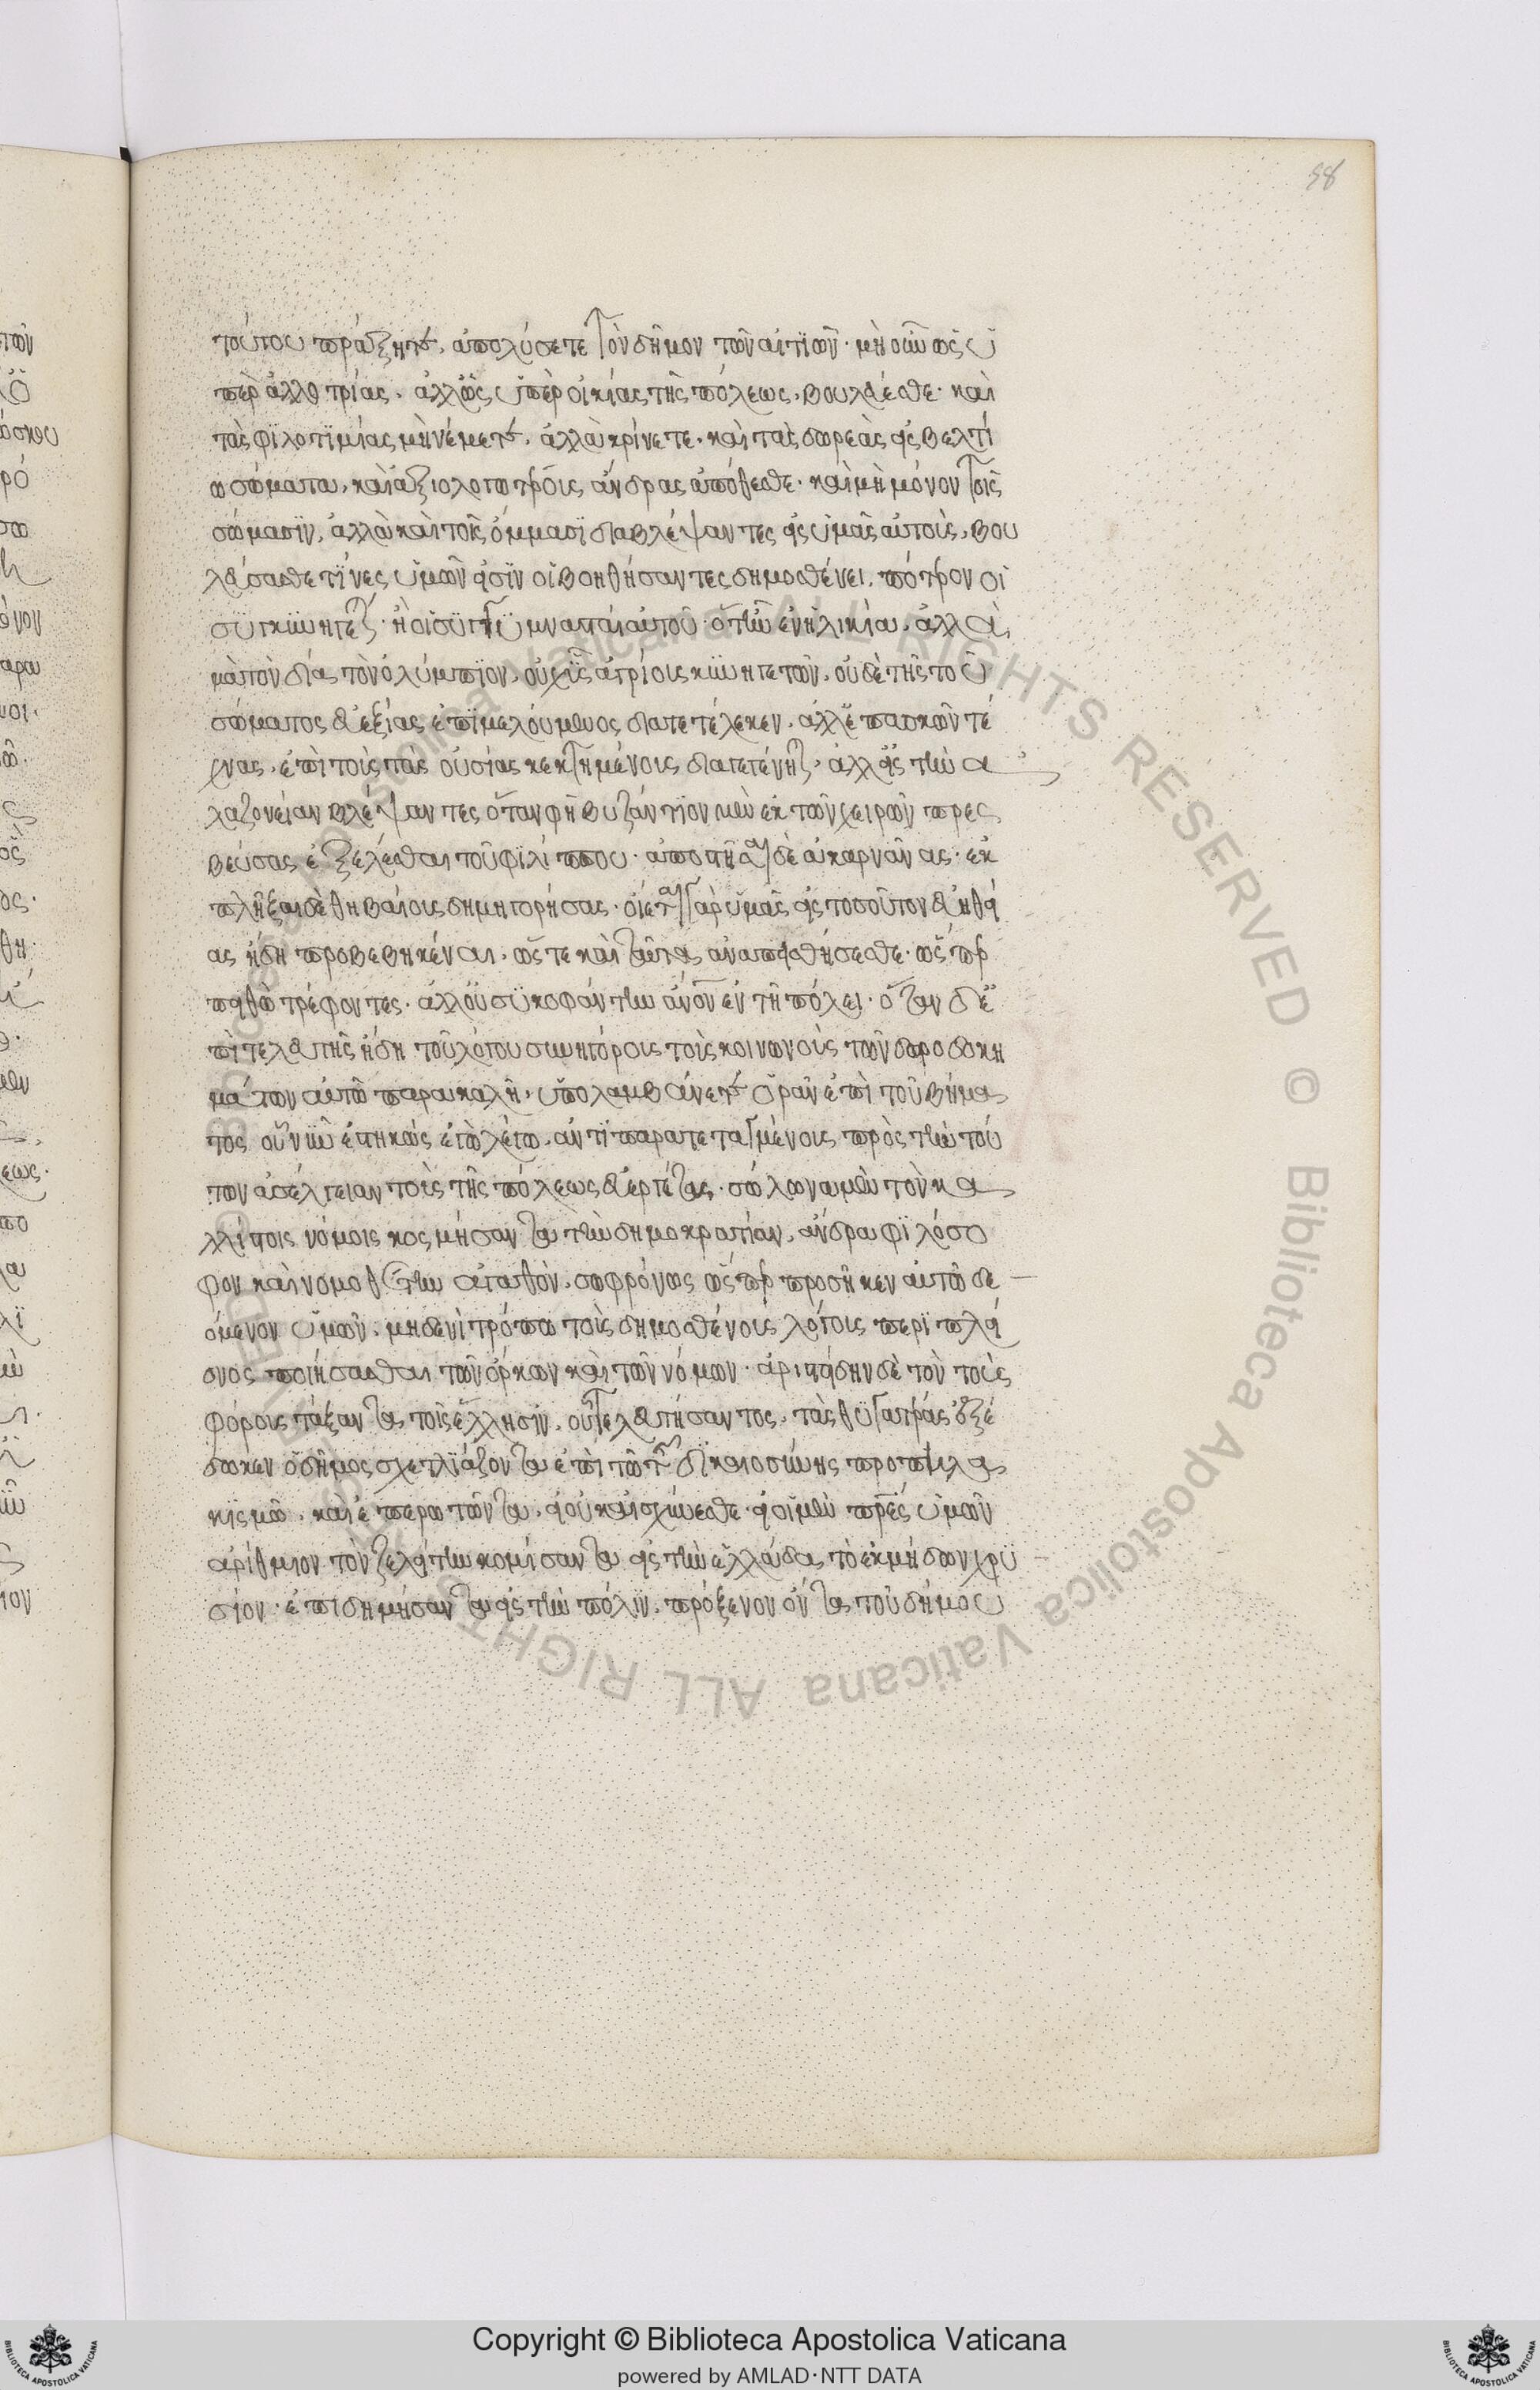 58
τούτου πράξητε, ἀπολύσετε τὸν δῆμον τῶν αἰτιῶν· μὴ οὖν ὡς ὑ
πὲρ ἀλλοτρίας, ἀλλ' ὡς ὑπὲρ οἰκίας τῆς πόλεως, βουλεύεσθε· καὶ
τὰς φιλοτιμίας μὴ νέμετε, ἀλλὰ κρίνετε· καὶ τὰς δωρεὰς εἰς βελτί
ω σώματα, καὶ ἀξιολογωτέρους ἄνδρας ἀπόθεσθε· καὶ μὴ μόνον τοῖς
ὠσὶν, ἀλλὰ καὶ τοῖς ὄμμασι διαβλέψαντες εἰς ὑμᾶς αὐτοὺς, βου
λεύσασθε τίνες ὑμῶν εἰσὶν οἱ βοηθήσαντες δημοσθένει. πότερον οἱ
συγκυνηγέται· ἢ οἱ συγγυμνασταὶ αὐτοῦ ὅτ' ἦν ἐν ἡλικία. ἀλλὰ
μὰ τὸν δία τὸν ὀλύμπιον, οὐχ ὗς ἀγρίους κυνηγετῶν, οὐδὲ τῆς τοῦ
σώματος εὐεξίας ἐπιμελούμενος διατετέλεκεν, ἀλλ' ἐπασκῶν τέ
χνας, ἐπὶ τοὺς τὰς οὐσίας κεκτημένους διαγεγένηται· ἀλλ' εἰς τὴν ἀ
λαζονείαν βλέψαντες ὅταν φῇ βυζάντιον μὲν ἐκ τῶν χειρῶν πρεσ
βεύσας ἐξελέσθαι τοῦ φιλίππου· ἀποστῆσαι δὲ ἀκαρνᾶνας· ἐκ
πλῆξαι δὲ θηβαίους δημηγορήσας· οἴεται γὰρ ὑμᾶς εἰς τοσοῦτον εὐηθεί
ας ἤδη προβεβηκέναι, ὥστε καὶ ταῦτα ἀναπεισθήσεσθε· ὥσπερ
πειθὼ τρέφοντες· ἀλλ' οὐ συκοφάντην ἄνον ἐν τῇ πόλει· ὅταν δ' ἐ
πὶ τελευτῆς ἤδη τοῦ λόγου συνηγόρους τοὺς κοινωνοὺς τῶν δωροδοκη
μάτων αὐτῷ παρακαλῇ, ὑπολαμβάνετε ὁρᾶν ἐπὶ τοῦ βήμα
τος οὗ νῦν ἑστηκὼς ἐγὼ λέγω, ἀντιπαρατεταγμένους πρὸς τὴν τού
των ἀσέλγειαν τοὺς τῆς πόλεως εὐεργέτας. σόλωνα μὲν τὸν κα
λλίστοις νόμοις κοσμήσαντα τὴν δημοκρατίαν, ἄνδρα φιλόσο
φον καὶ νομοθέτην ἀγαθὸν, σωφρόνως ὥσπερ προσῆκεν αὐτῷ δε
όμενον ὑμῶν, μηδενὶ τρόπω τοὺς δημοσθένους λόγους περὶ πλεί
ονος ποιήσασθαι τῶν ὅρκων καὶ τῶν νόμων· ἀριστείδην δὲ τὸν τοὺς
φόρους τάξαντα τοῖς ἕλλησιν, οὗ τελευτήσαντος, τὰς θυγατέρας ἐξέ
δωκεν ὁ δῆμος σχετλιάζοντα ἐπὶ τῷ τῆς δικαιοσύνης προπηλα
κισμῷ, καὶ ἐπερωτῶντα, εἰ οὐκ αἰσχύνεσθε· εἰ οἱ μὲν πρες ὑμῶν
ἀρίθμιον τὸν ζελείτην κομίσαντα εἰς τὴν ἑλλάδα τὸ ἐκ μήδων χρυ
σίον· ἐπιδημήσαντα εἰς τὴν πόλιν, πρόξενον ὄντα τοῦ δήμου
Copyright © Biblioteca Apostolica Vaticana
powered by AMLAD·NTT DATA